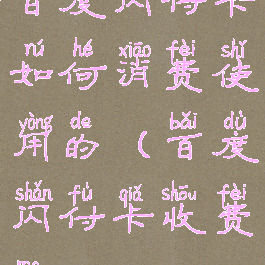 百度闪付卡
nú hé xiāo fèi shǐ
如何消费使
yòng de bǎi dù
用的(百度
shǎn fù qiǎ shōu fèi
闪付卡收费
ma